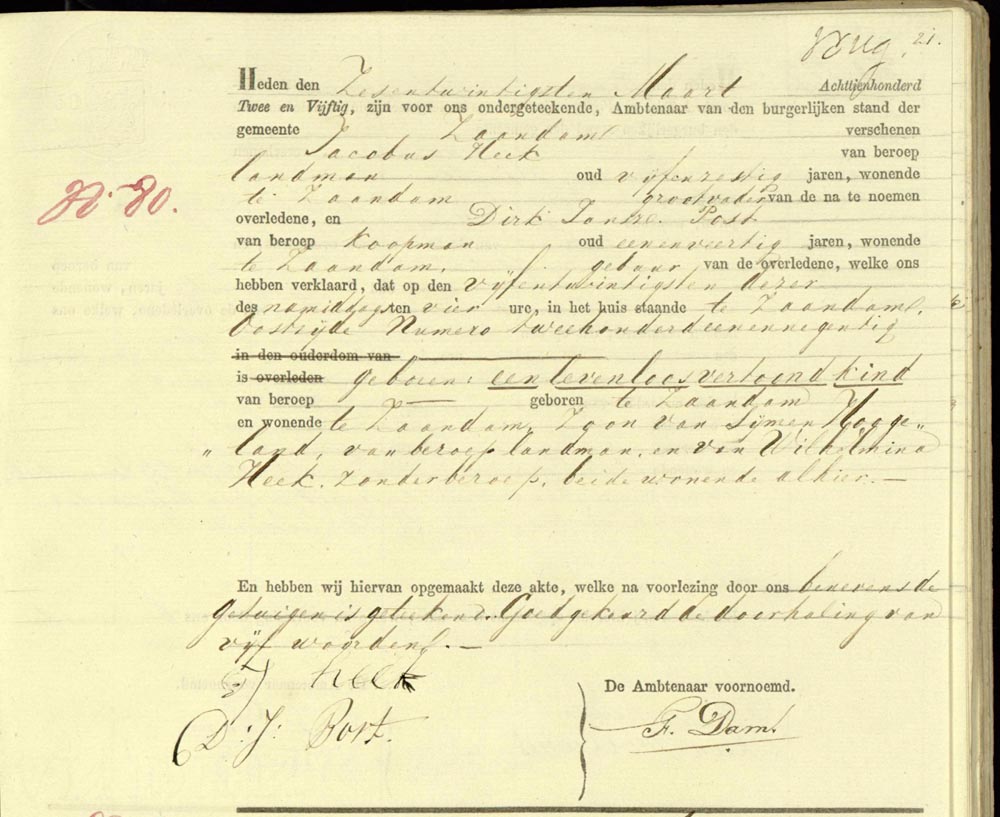 21.
Heden den Zesentwintigsten Maart Achttienhonderd
Twee en Vijftig, zijn voor ons ondergeteekende, Ambtenaar van den burgerlijken stand der
gemeente Zaandam verschenen
Jacobus Heek van beroep
landman oud vijfenzestig jaren, wonende
te Zaandam grootvader van de na te noemen
overledene, en Dirk Jansz. Post
van beroep Koopman oud eenenveertig jaren, wonende
te Zaandam, gebuur van de overledene, welke ons
N. 80.
hebben verklaard, dat op den vijfentwintigsten dezer
des namiddags ten vier ure, in het huis staande te Zaandam,
Oostzijde Numero tweehonderdeenennegentig
in den ouderdom van
is overleden geboren: een levenloos vertoond kind
van beroep — geboren te Zaandam
en wonende te Zaandam, Zoon van Sijmen Hooge„
„land, van beroep landman, en van Wilhelmina
Heek, zonder beroep, beide wonende alhier. —
En hebben wij hiervan opgemaakt deze akte, welke na voorlezing door ons benevens de
getuigen is geteekend. Goedgekeurd de doorhaling van
vijf woorden. —
J Heek
D: J: Post.
De Ambtenaar voornoemd.
F. Dam.